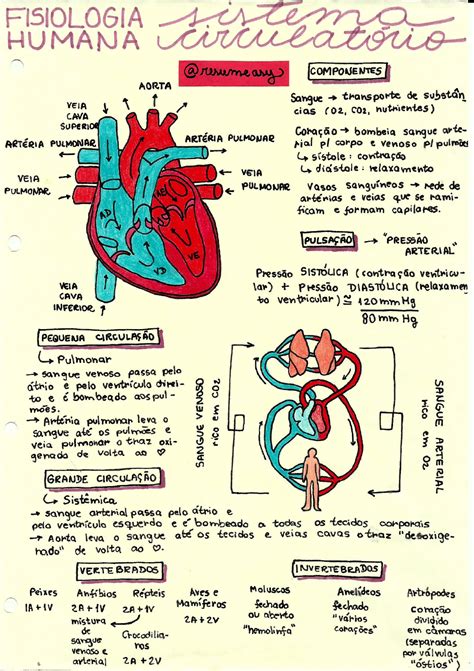 FISIOLOGIA HUMANA
sistema circulatório
@resumeasy
COMPONENTES
Sangue → transporte de substân
cias (O2, CO2, nutrientes)
Coração → bombeia sangue arte
rial p/ corpo e venoso p/ pulmões
↳ sístole: contração
↳ diástole: relaxamento
Vasos sanguíneos → rede de
artérias e veias que se rami
ficam e formam capilares.
AORTA
VEIA
CAVA
SUPERIOR
ARTÉRIA PULMONAR
ARTÉRIA PULMONAR
VEIA
PULMONAR
VEIA
PULMONAR
AD
AE
VE
VD
VEIA
CAVA
INFERIOR
PULSAÇÃO → "PRESSÃO
ARTERIAL"
Pressão SISTÓLICA (contração ventricu-
lar) + Pressão DIASTÓLICA (relaxamen
to ventricular) ≅ 120 mmHg
80 mmHg
PEQUENA CIRCULAÇÃO
↳ Pulmonar
→ sangue venoso passa pelo
átrio e pelo ventrículo direi-
to e é bombeado aos pul-
mões.
→ Artéria pulmonar leva o
sangue até os pulmões e
veia pulmonar o traz oxi-
genado de volta ao ♡
SANGUE VENOSO
rico em CO2
SANGUE ARTERIAL
rico em O2
GRANDE CIRCULAÇÃO
↳ Sistêmica
→ sangue arterial passa pelo átrio e
pelo ventrículo esquerdo e é bombeado a todas os tecidos corporais
→ Aorta leva o sangue até os tecidos e veias cavas o traz "desoxige-
nado" de volta ao ♡.
VERTEBRADOS
Peixes
1A + 1V
Anfíbios
2A + 1V
mistura
de
sangue
venoso e
arterial
Répteis
2A + 1V
Crocodilia-
nos
2A + 2V
Aves e
Mamíferos
2A + 2V
INVERTEBRADOS
Moluscos
fechado
ou
aberto
"hemolinfa"
Anelídeos
fechado
"vários
corações"
Artrópodes
coração
dividido
em câmaras
(separadas
por válvulas
"óstios")